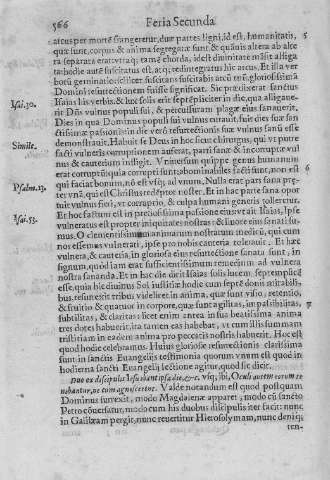 566 Feria Secunda
arcus per mortē frangeretur, duæ partes ligni, id est, humanitatis,
quæ sunt, corpus & anima segregatæ sunt & quāuis altera ab alte
ra separata erat, vtraq; tamē chorda, idest diuinitate māsit alliga
ta, hodie autē suscitatus est, atq; redintegratus hic arcus. Et illa ver
borū geminatio: scilicet suscitans suscitabis arcū tuū, gloriosissimā
Domini resurrectionem fuisse significat. Sic prædixerat sanctus
Isaias his verbis. & lux solis erit septēpliciter in die, qua alligaue-
Isai. 30.
rit Dñs vulnus populi sui, & percussuram plagæ eius sanauerit.
Dies in qua Dominus populi sui vulnus curauit, fuit dies suæ san
ctissimæ passionis in die verò resurrectionis suæ vulnus sanū esse
demonstrauit. Habuit se Deus in hoc sicut chirurgus, qui vt putre
Simile.
facti vulneris corruptionem auferat, parti sanæ & incorruptæ vul
nus & cauterium infligit. Vniuersum quippe genus humanum
erat corruptū: quia corrupti sunt: abominabiles facti sunt, non est
qui faciat bonum, nō est vsq; ad vnum. Nulla erat pars sana præ-
Psalm. 13.
ter vnā, quæ est Christus redēptor noster. Et in hac parte sana opor
tuit vulnus fieri, vt corruptio, & culpa humani generis tolleretur.
Et hoc factum est in pretiosissima passione eius vt ait Isaias, Ipse
Isai. 53.
vulneratus est propter iniquitates nostras: & liuore eius sanati su-
mus. O clementissimum animarum nostrarum medicū, qui cum
nos essemus vulnerati, ipse pro nobis cauteria tolerauit. Et hæc
vulnera, & cauteria, in gloriosa die resurrectione sanata sunt, in
signum, quod iam erat sufficientissimum remedium ad vulnera
nostra sananda. Et in hac die dicit Isaias solis lucem septemplicē
esse, quia hic diuinus Sol iustitiæ hodie cum septē donis mirabili-
bus, resurrexit tribus videlicet in anima, quæ sunt visio, retentio,
& fruitio & quatuor in corpore, quæ sunt agilitas, impassibilitas,
subtilitas, & claritas: licet enim antea in sua beatissima anima
tres dotes habuerit, ita tamen eas habebat, vt cum illis summam
tristitiam in eadem anima pro peccatis nostris habuerit. Hoc est
quod hodie celebramus. Huius gloriosæ resurrectionis clarissima
sunt in sanctis Euangelijs testimonia quorum vnum est quod in
hodierna sancti Euangelij lectione agitur, quod sic dicit.
Duo ex discipulis Iesu ibant ipsa die, &c. vsq; ibi, Oculi autem eorum te
nebantur, ne eum agnoscerent. Valde notandum est quod postquam
Dominus surrexit, modo Magdalenæ apparet, modo cū sancto
Petro cōuersatur, modo cum his duobus discipulis iter facit: nunc
in Galilæam pergit, nunc reuertitur Hierosolymam, nunc deniq;
ten-